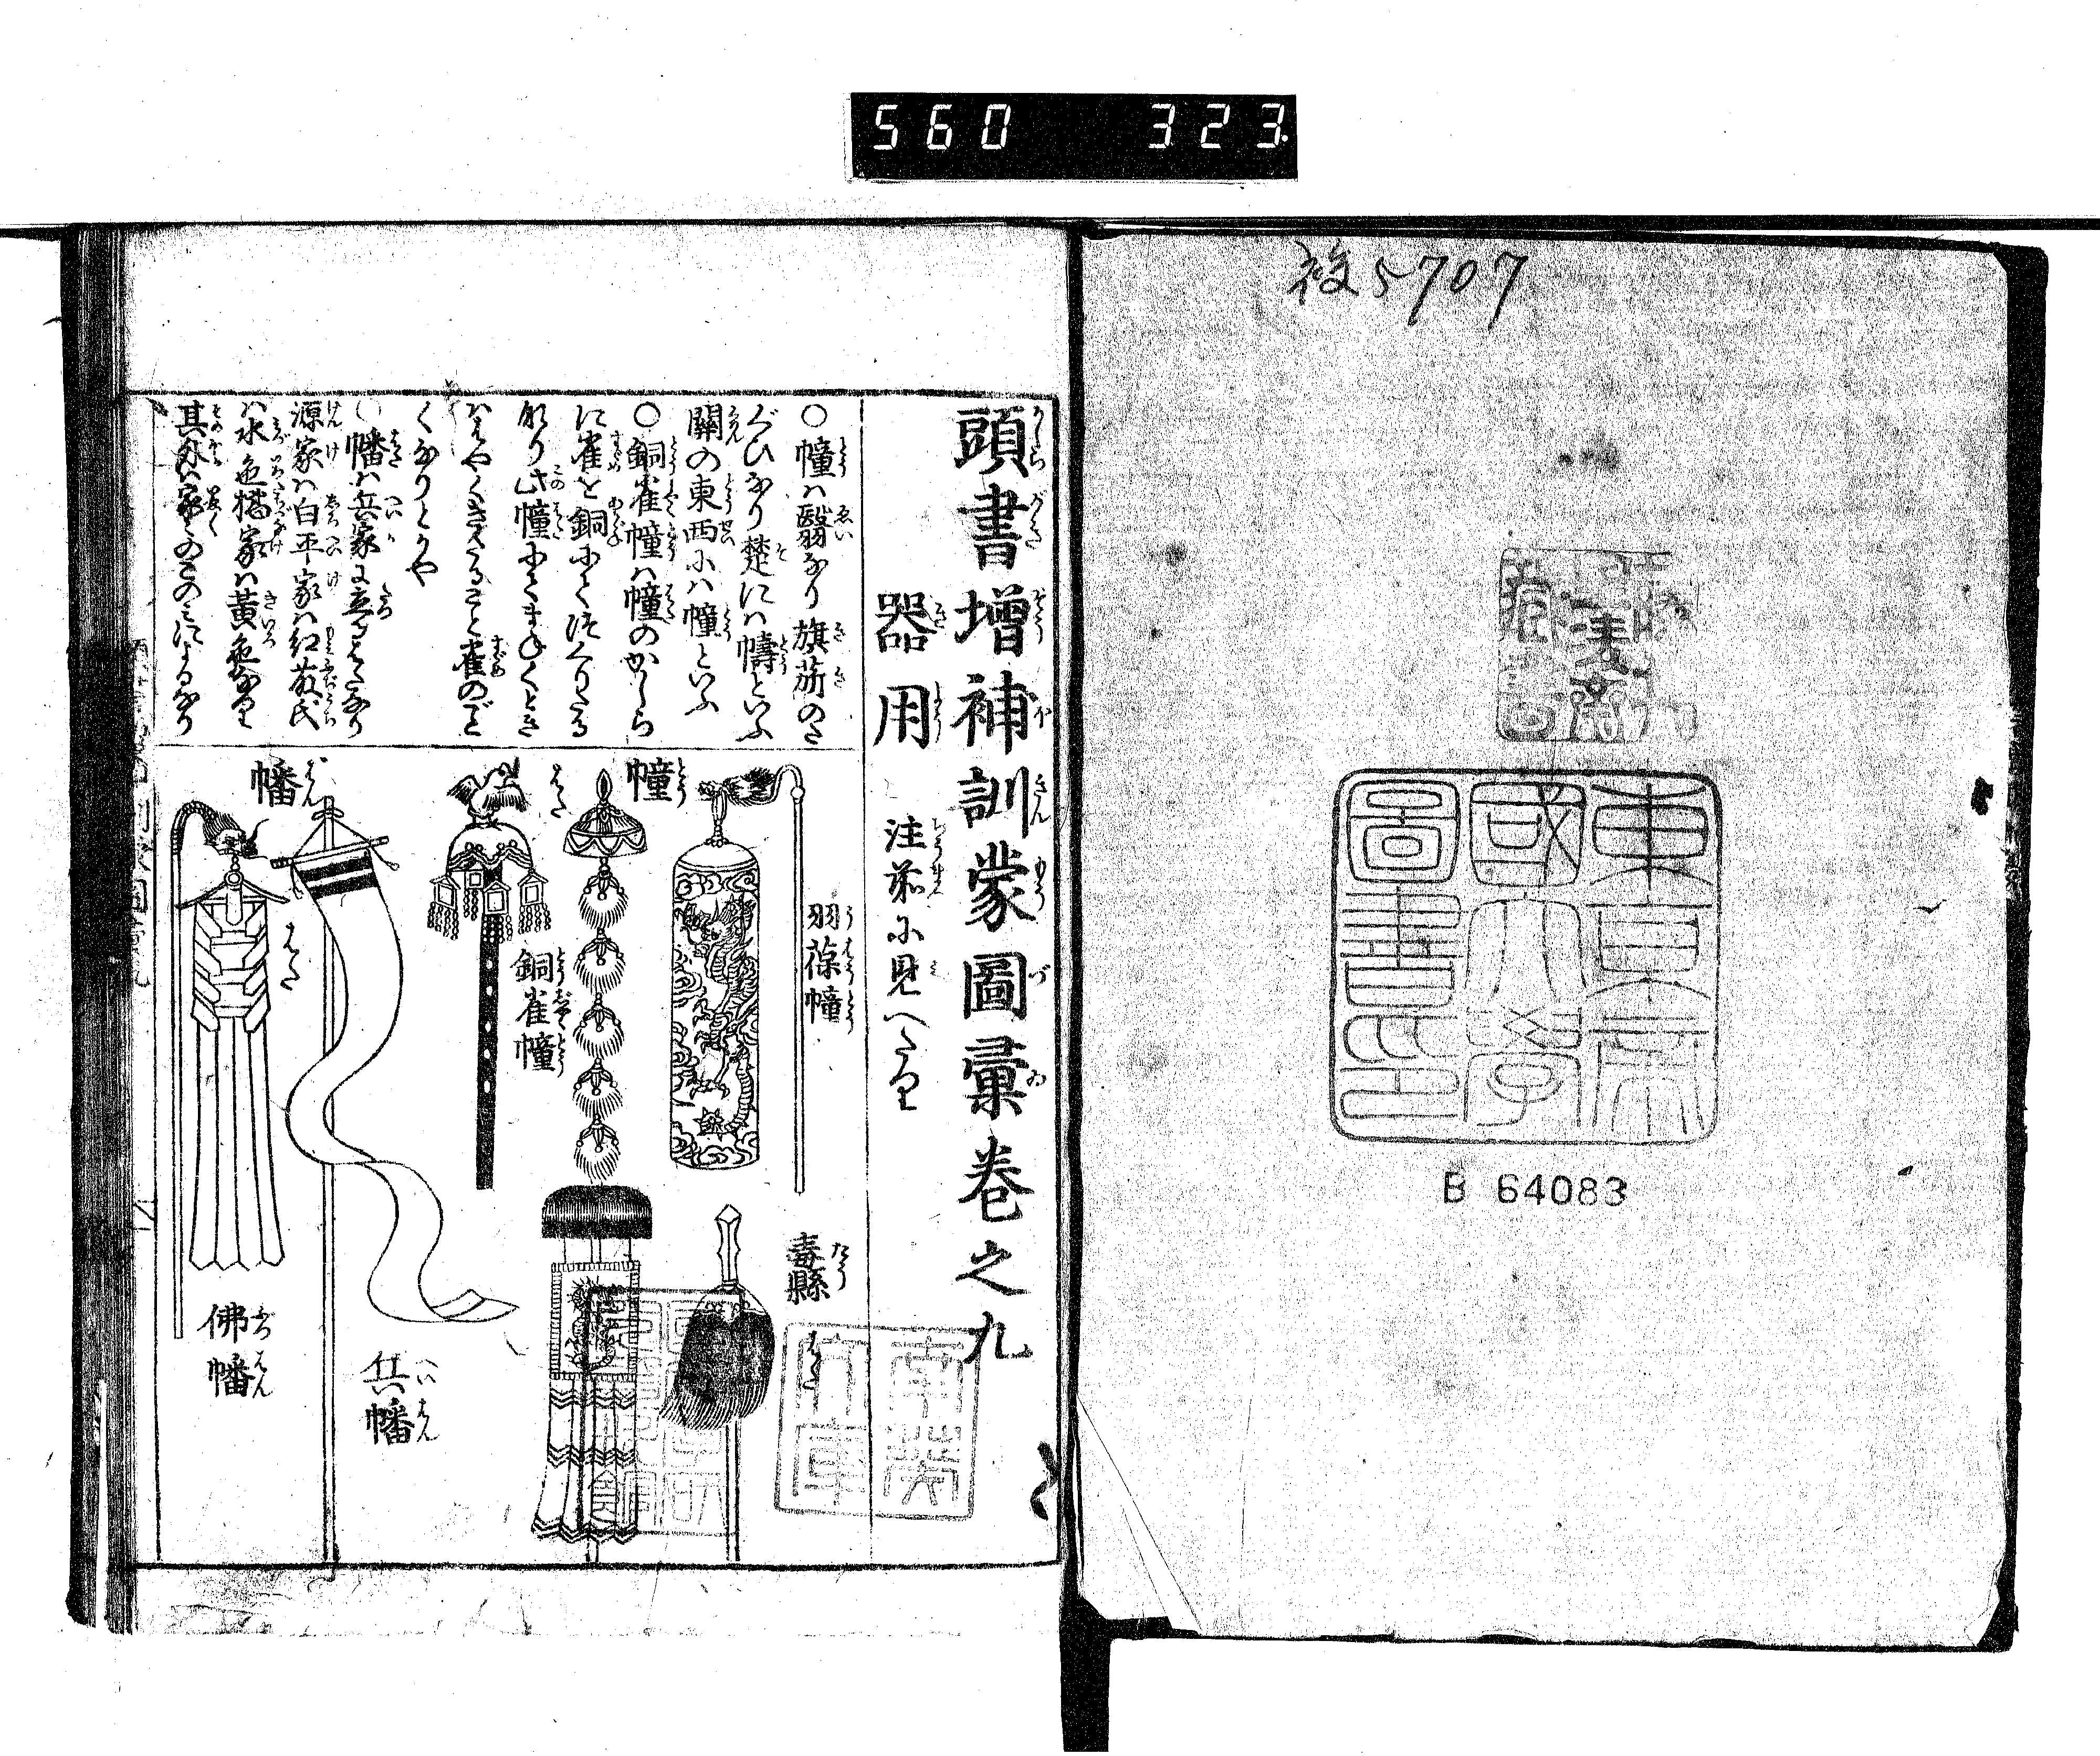 560 323
複5707
東京帝
國大學
圖書印
B 64083
頭書增補訓蒙圖彙卷之九
器用 注前に見へたり
○幢ハ翳なり旗旍のた
ぐひなり楚にハ幬といふ
關の東西にハ幢といふ
○銅雀幢ハ幢のかしら
に雀を銅にて作りたる
なり此幢にてまねくとき
ハはやくきたること雀のごと
くなりとかや
○幡ハ兵家に立るはたなり
源家ハ白平家ハ紅藤氏
ハ水色橘家ハ黄色なり
其外ハ家〻のこのミによるなり
羽葆幢
幢 はた
銅雀幢
纛 はた
幡 はた
兵幡
佛幡
南葵
文庫